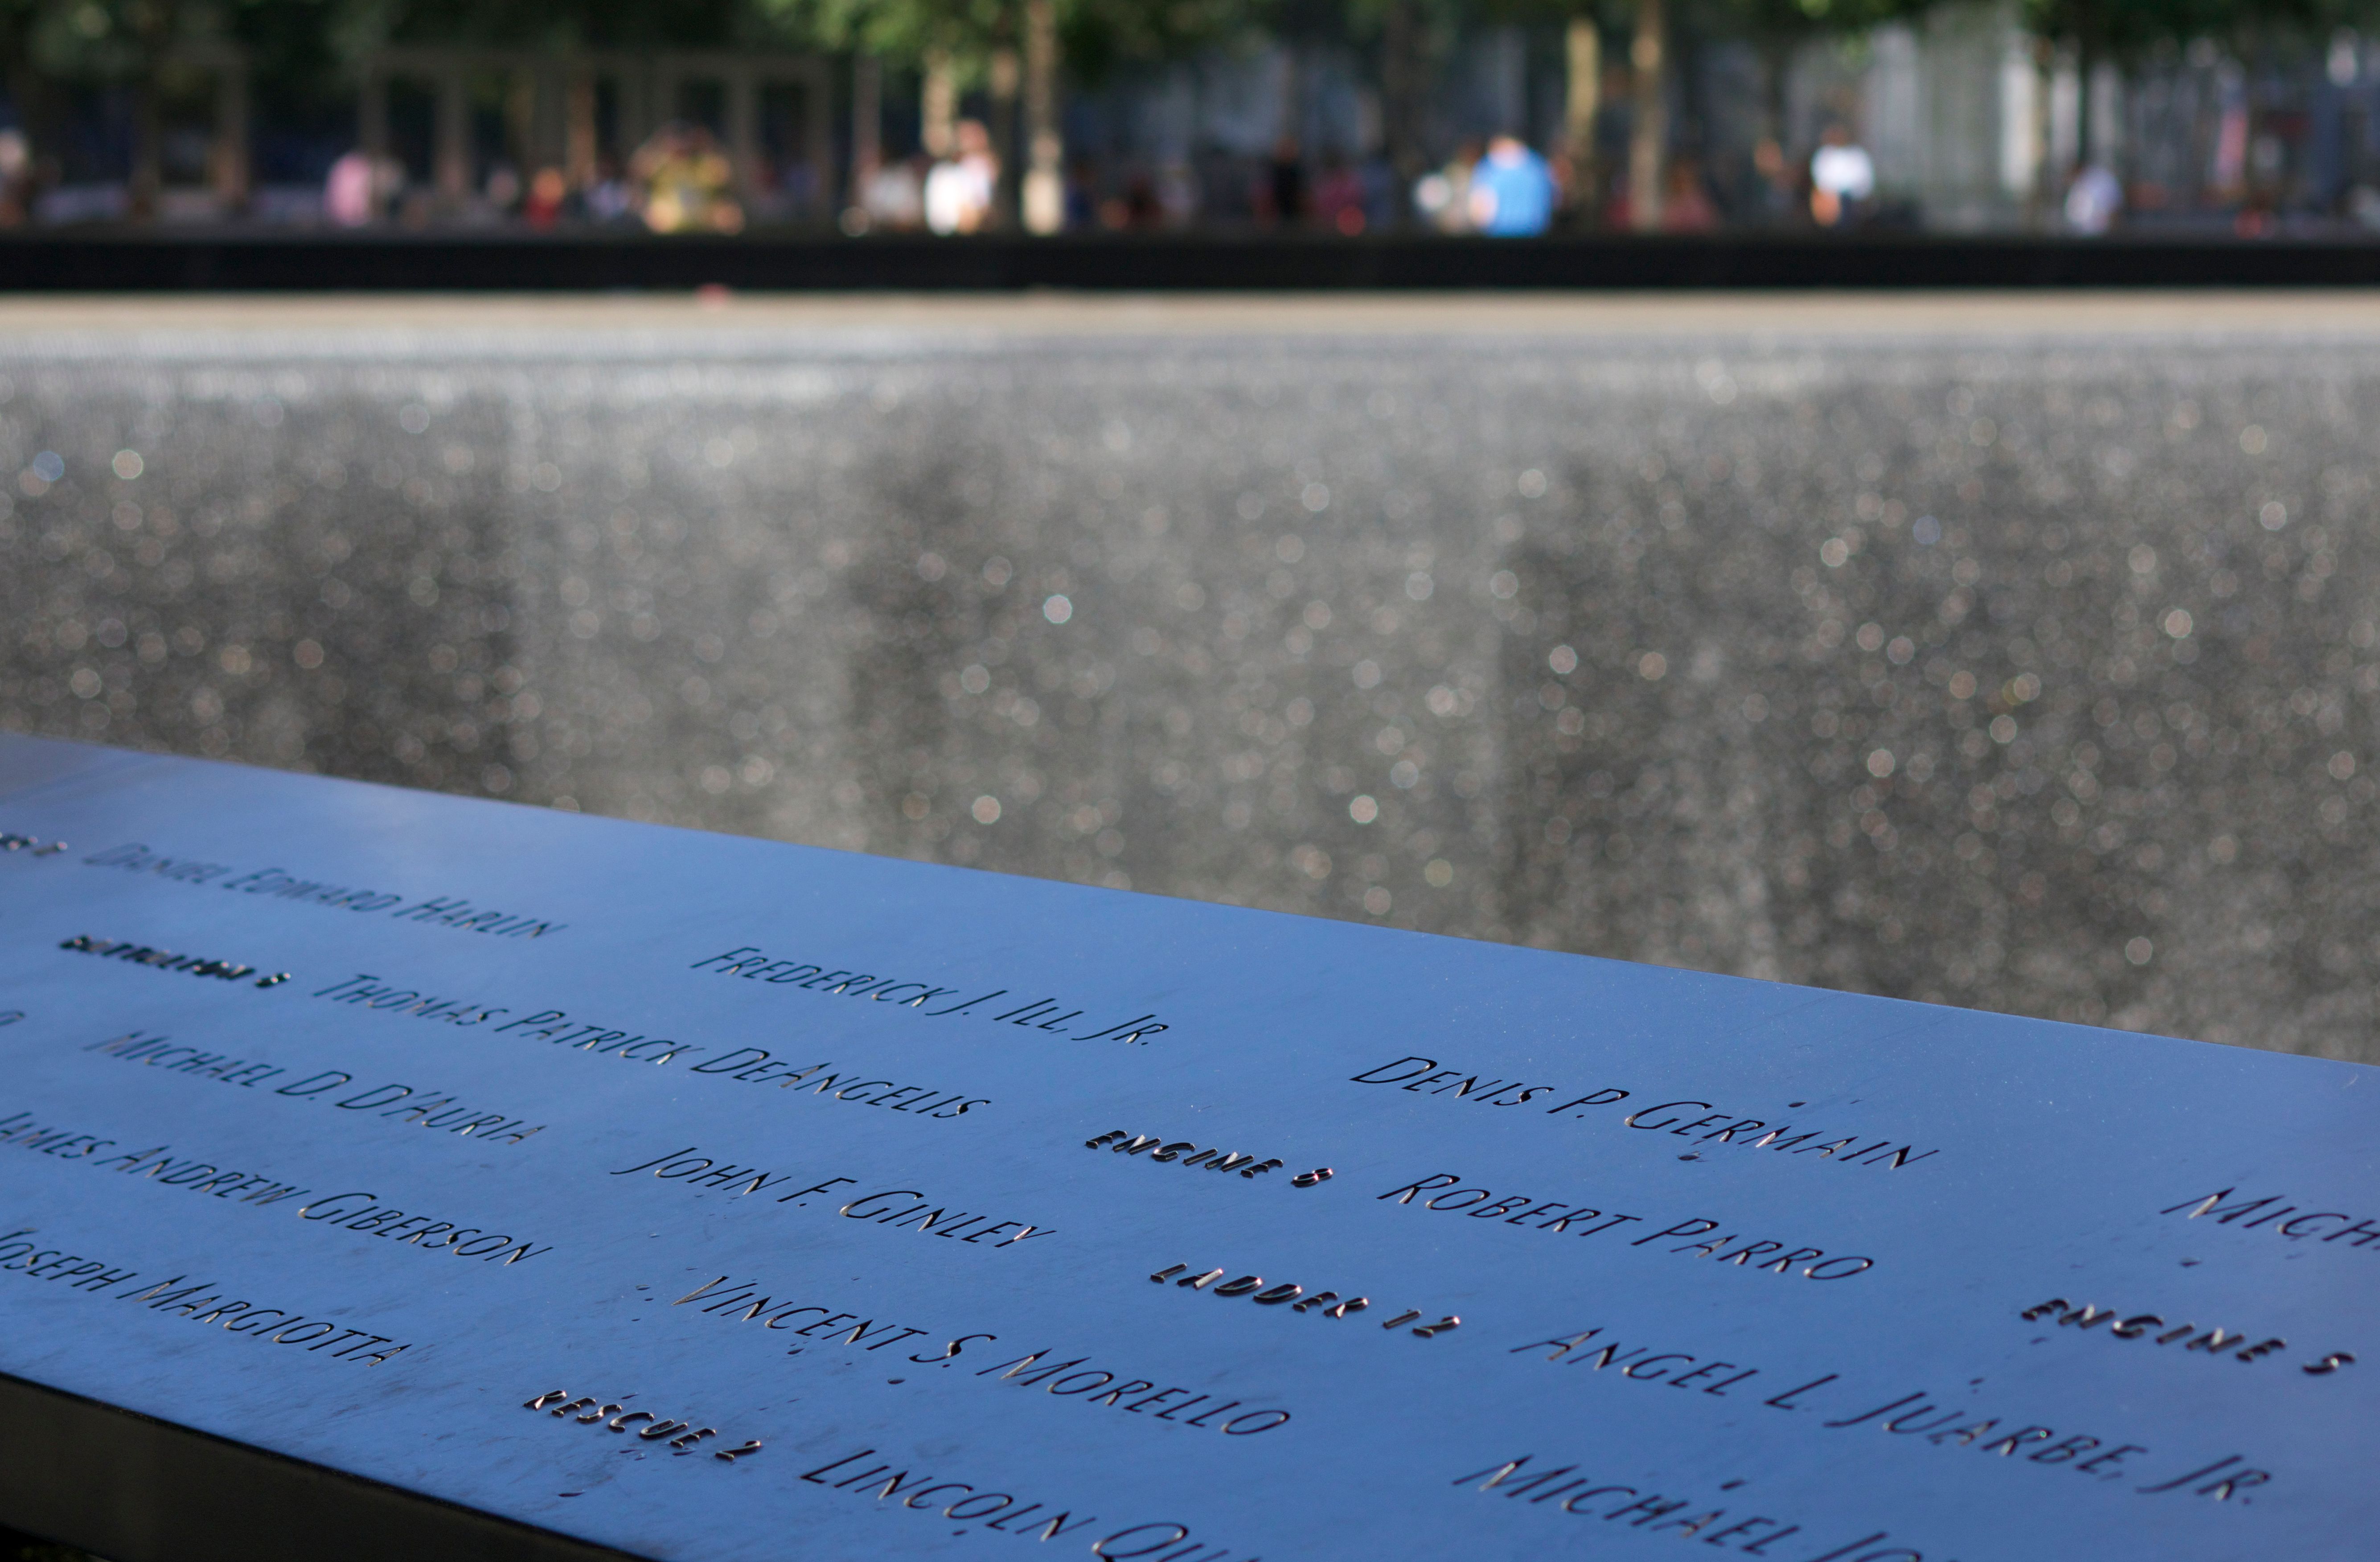 DANIEL EDWARD HARLIN FREDERICK J. ILL, JR. DENIS P. GERMAIN MICH
BATTALION THOMAS PATRICK DEANGELIS ENGINE 8 ROBERT PARRO ENGINE 5
MICHAEL D. D'AURIA JOHN F. GINLEY LADDER 12 ANGEL L. JUARBE, JR.
JAMES ANDREW GIBERSON VINCENT S. MORELLO MICHAEL JO
JOSEPH MARGIOTTA RESCUE 2 LINCOLN QU